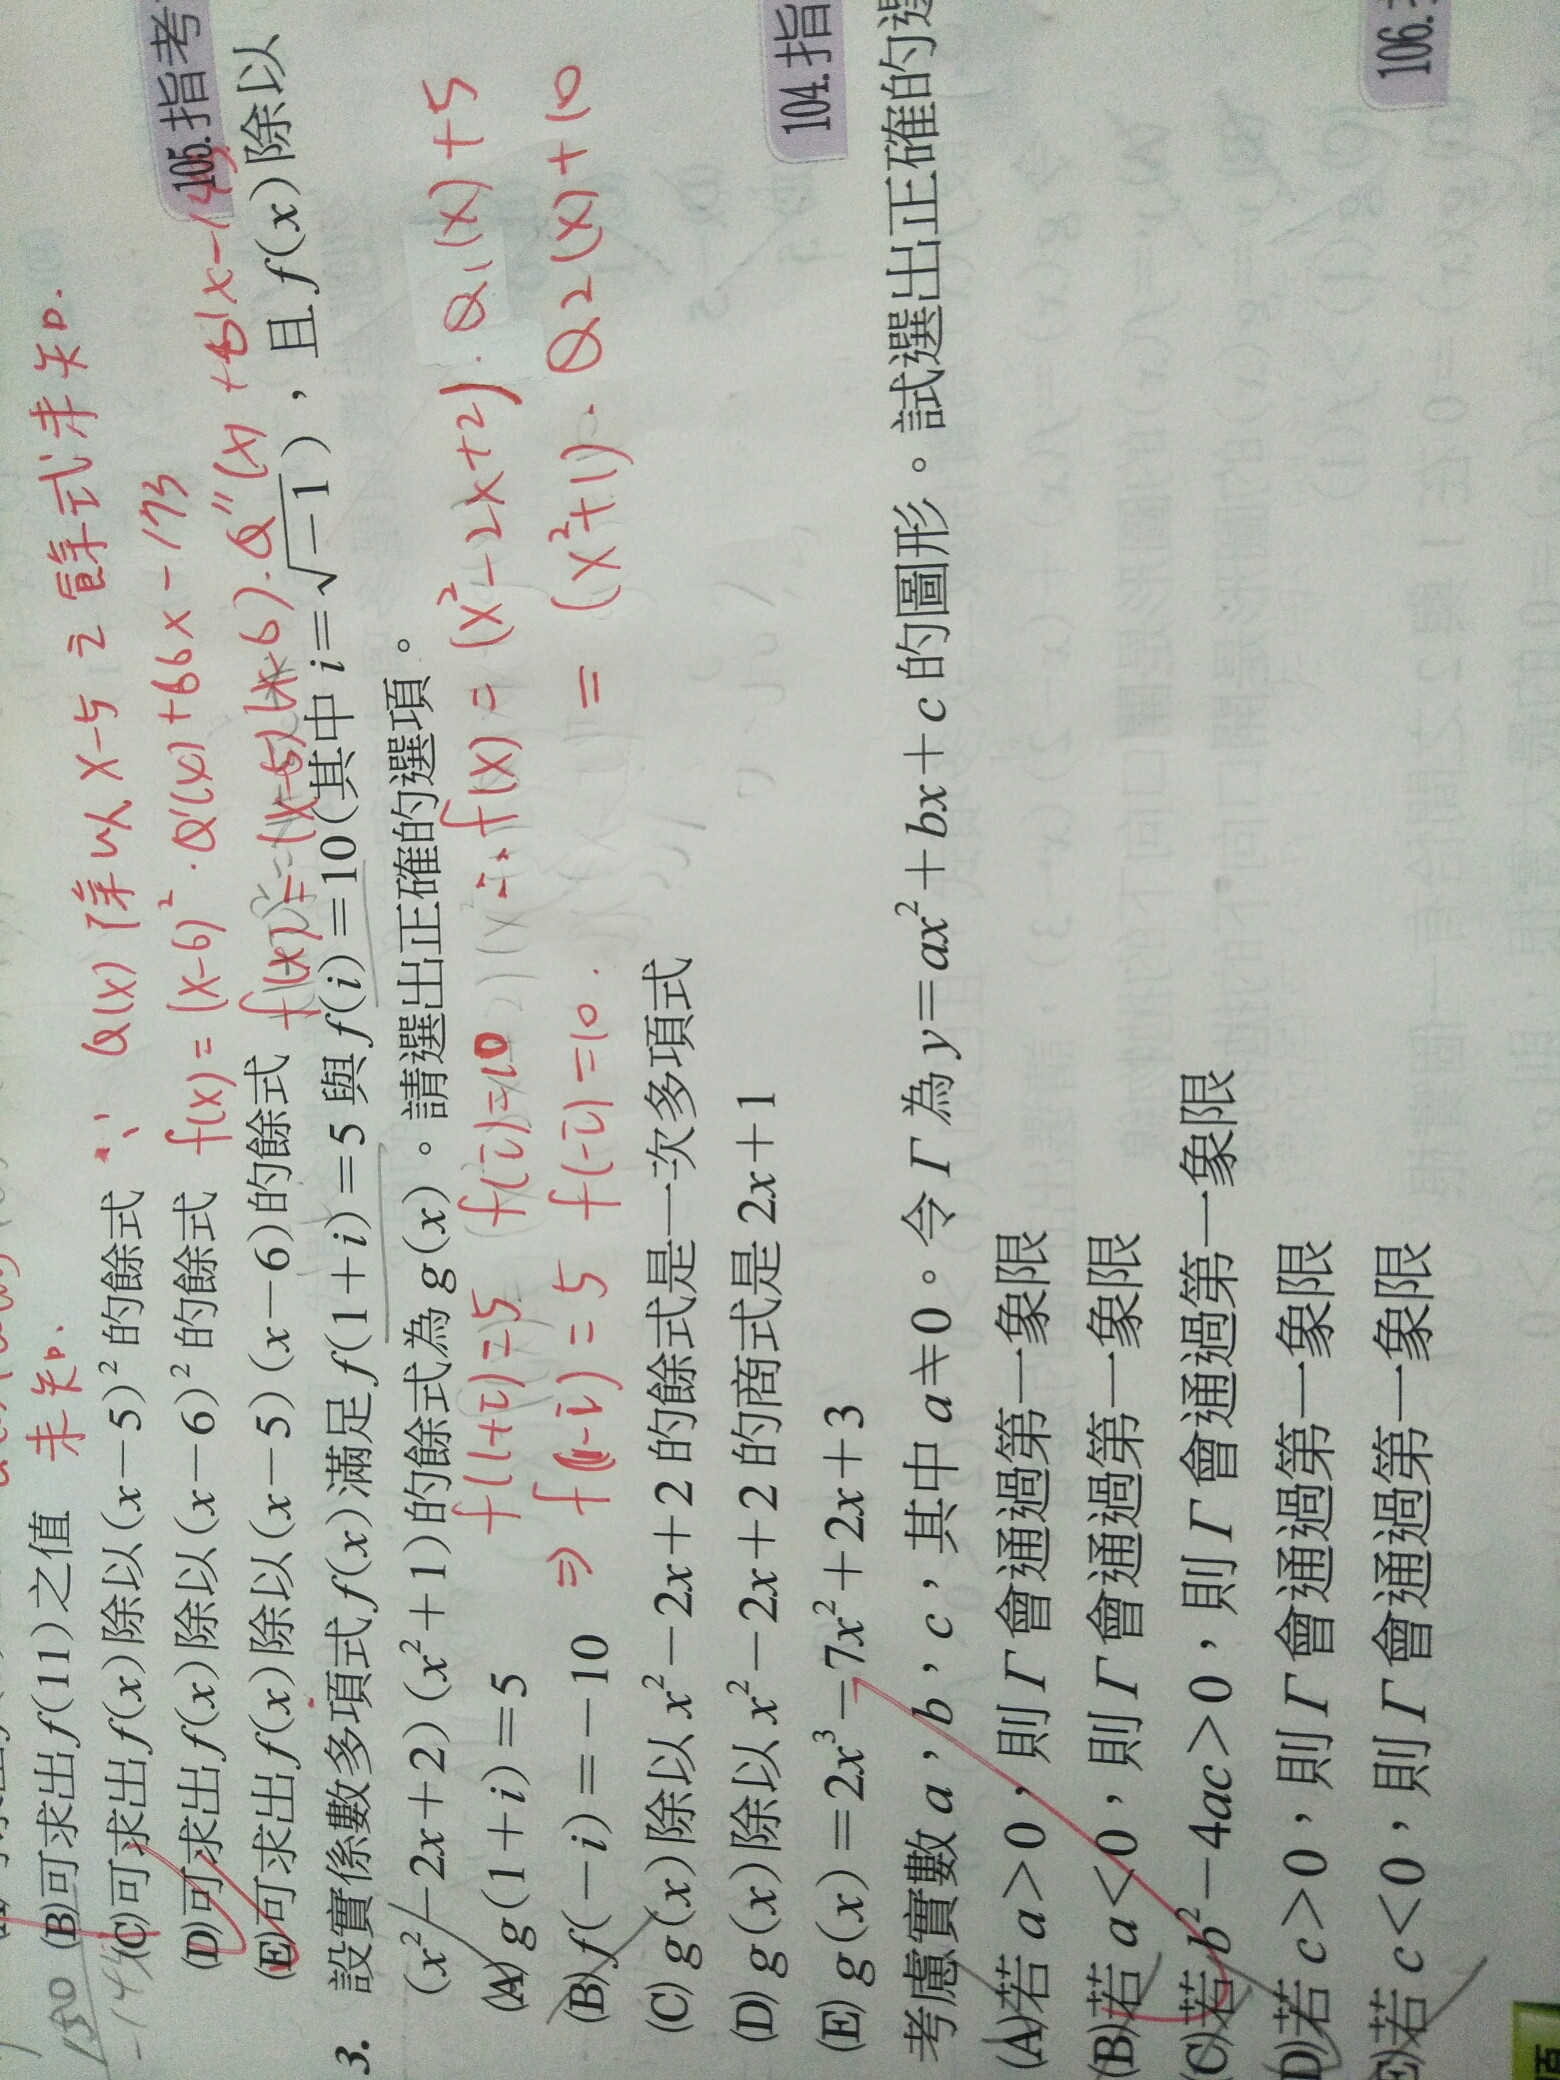 未知、
(B)可求出f(11)之值
∵ Q(x)除以x-5之餘式未知.
(C)可求出f(x)除以(x-5)²的餘式
f(x)=(x-6)²·Q'(x)+66x-193
(D)可求出f(x)除以(x-6)²的餘式
(E)可求出f(x)除以(x-5)(x-6)的餘式
105.指考
3. 設實係數多項式f(x)滿足f(1+i)=5與f(i)=10(其中i=√-1),且f(x)除以
(x²-2x+2)(x²+1)的餘式為g(x)。請選出正確的選項。
(A) g(1+i)=5
f(1+i)=5 f(i)=10 ∴ f(x)=(x²-2x+2)·Q1(x)+5
(B) f(-i)=-10
⇒ f(1-i)=5 f(-i)=10. =(x²+1)·Q2(x)+10
(C) g(x)除以x²-2x+2的餘式是一次多項式
(D) g(x)除以x²-2x+2的商式是2x+1
(E) g(x)=2x³-7x²+2x+3
104.指
考慮實數a,b,c,其中a≠0。令Γ為y=ax²+bx+c的圖形。試選出正確的選
(A)若a>0,則Γ會通過第一象限
(B)若a<0,則Γ會通過第一象限
(C)若b²-4ac>0,則Γ會通過第一象限
(D)若c>0,則Γ會通過第一象限
(E)若c<0,則Γ會通過第一象限
106.